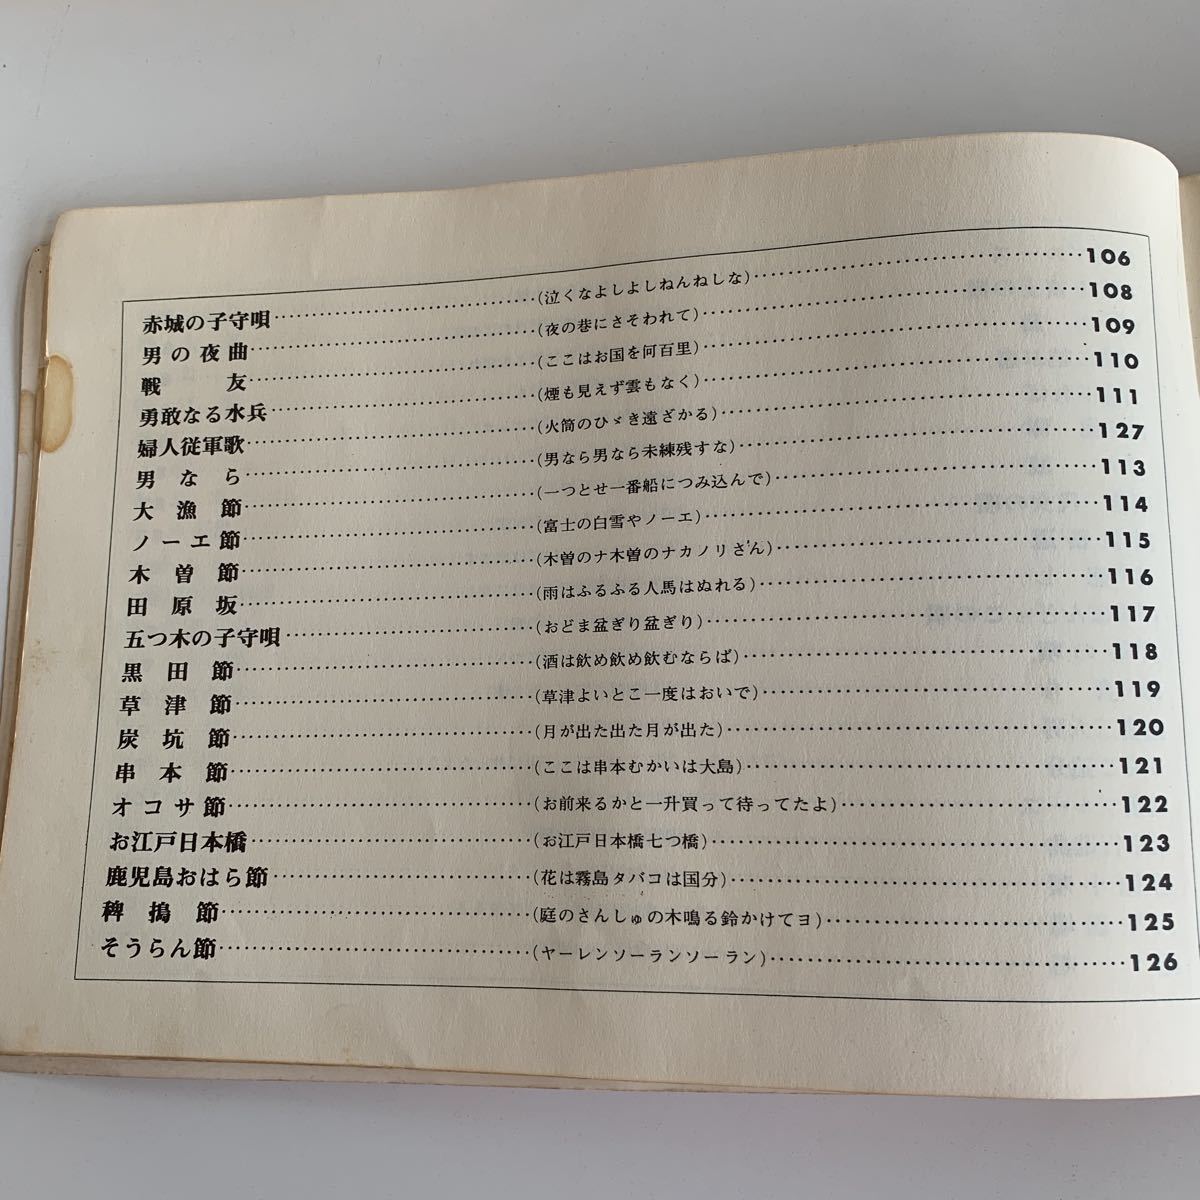 赤城の子守唄……(泣くなよしよしねんねしな)……106
男の夜曲……(夜の巷にさそわれて)……108
戦友……(ここはお国を何百里)……109
勇敢なる水兵……(煙も見えず雲もなく)……110
婦人従軍歌……(火筒のひゞき遠ざかる)……111
男なら……(男なら男なら未練残すな)……127
大漁節……(一つとせ一番船につみ込んで)……113
ノーエ節……(富士の白雪やノーエ)……114
木曽節……(木曽のナ木曽のナカノリさん)……115
田原坂……(雨はふるふる人馬はぬれる)……116
五つ木の子守唄……(おどま盆ぎり盆ぎり)……117
黒田節……(酒は飲め飲め飲むならば)……118
草津節……(草津よいとこ一度はおいで)……119
炭坑節……(月が出た出た月が出た)……120
串本節……(ここは串本むかいは大島)……121
オコサ節……(お前来るかと一升買って待ってたよ)……122
お江戸日本橋……(お江戸日本橋七つ橋)……123
鹿児島おはら節……(花は霧島タバコは国分)……124
稗搗節……(庭のさんしゅの木鳴る鈴かけてヨ)……125
そうらん節……(ヤーレンソーランソーラン)……126